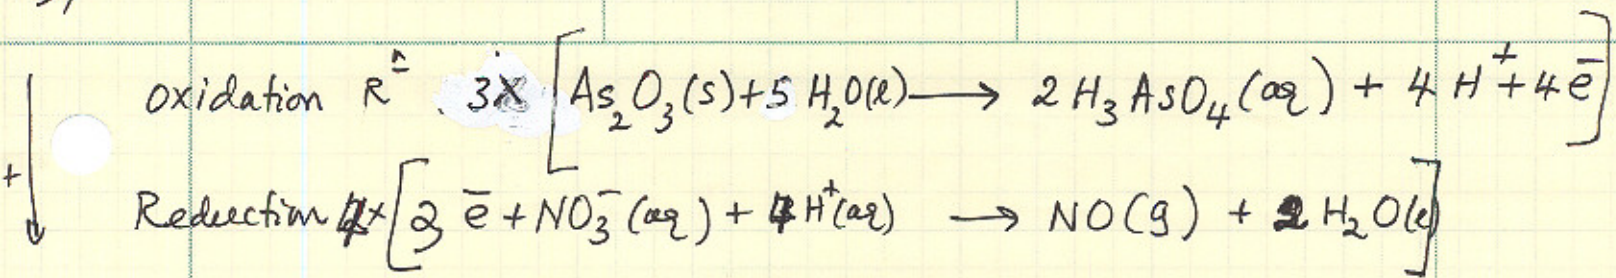 oxidation Rⁿ 3x [As₂O₃(s) + 5 H₂O(l) ⟶ 2 H₃AsO₄(aq) + 4 H⁺ + 4 e̅]
+ Reduction 4x [3 e̅ + NO₃⁻(aq) + 4 H⁺(aq) ⟶ NO(g) + 2 H₂O(l)]